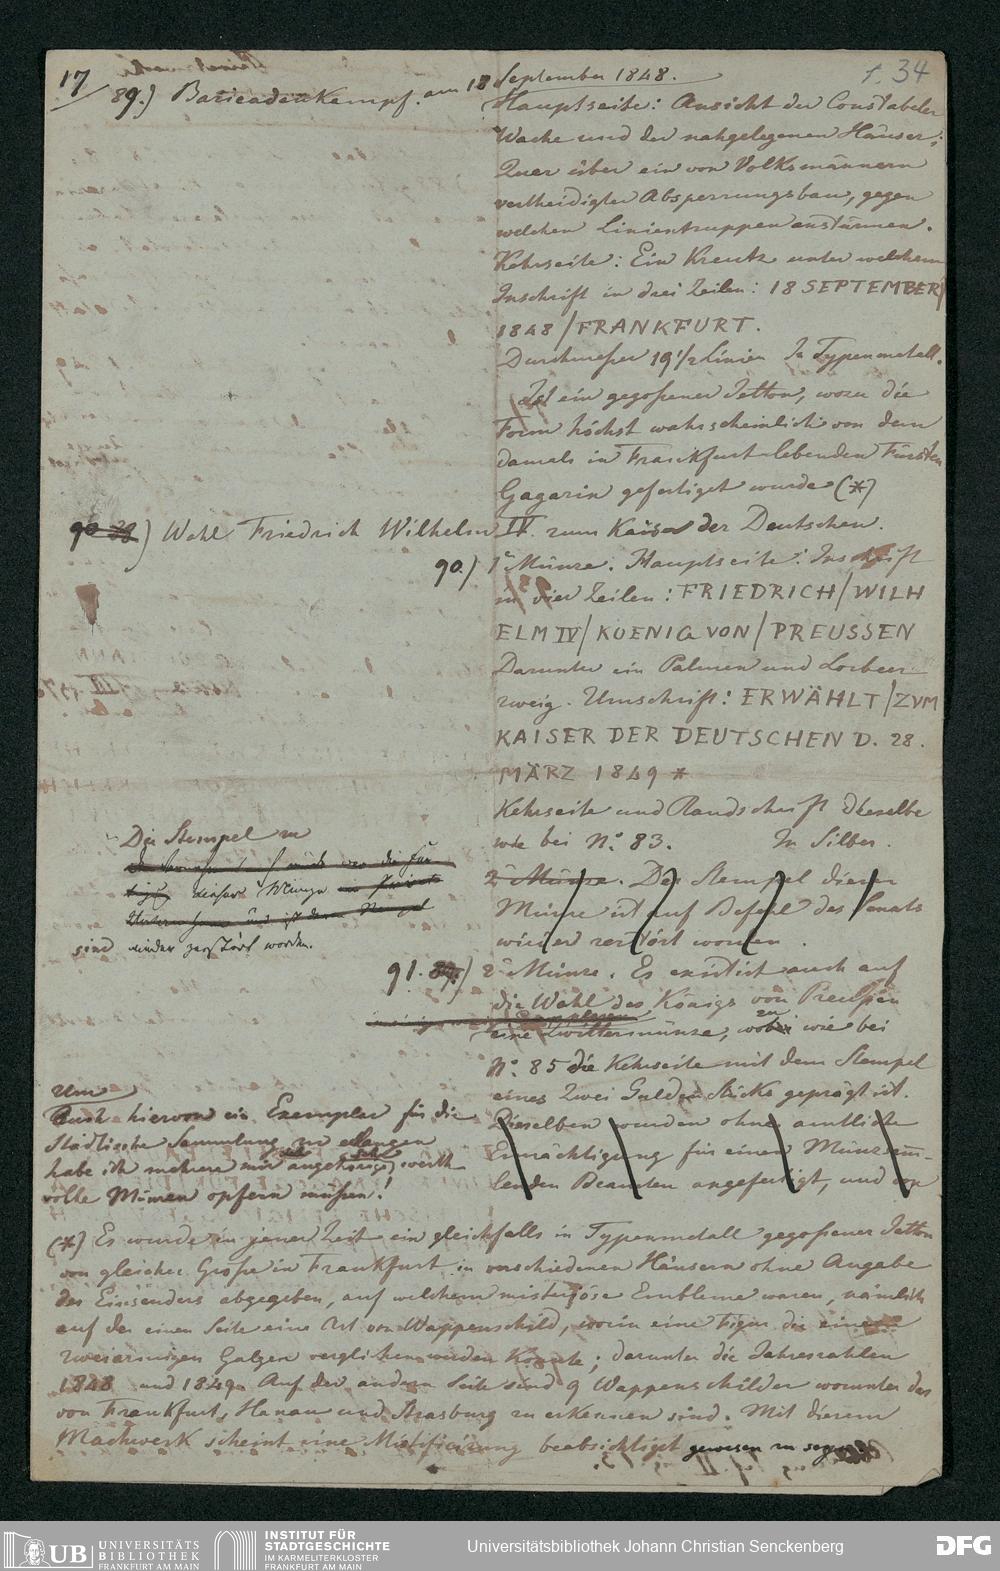 17
f. 34
89.) Baricadenkampf am 18 September 1848.
Hauptseite: Ansicht der Constabeler
Wache und der nahgelegenen Häuser;
Quer über ein von Volksmännern
vertheidigter Absperrungsbau, gegen
welchen Linientruppen anstürmen.
Kehrseite: Ein Kreutz unter welchem
Inschrift in drei Zeilen: 18 SEPTEMBER/
1848/FRANKFURT.
Durchmeßer 19 1/2 Linien In Typenmetall.
Ist ein gegoßener Jetton, wozu die
Form höchst wahrscheinlich von dem
damals in Frankfurt lebenden Fürsten
Gagarin gefertiget wurde (*)
90) Wahl Friedrich Wilhelm IV. zum Kaiser der Deutschen.
90.) 1e Münze. Hauptseite: Inschrift
in vier Zeilen: FRIEDRICH/WILH
ELM IV/KOENIG VON/PREUSSEN
Darunter ein Palmen und Lorbeer
zweig. Umschrift: ERWÄHLT/ZVM
KAISER DER DEUTSCHEN D. 28.
MÄRZ 1849 *
Kehrseite und Randschrift dieselbe
wie bei No. 83. In Silber.
Die Stempel zu
dieser Münze
sind wieder zerstört worden.
2 Münze. Der Stempel dieser
Münze ist auf Befehl des Senats
wieder zerstört worden.
91. 2e Münze. Es existirt auch auf
die Wahl des Königs von Preußen
eine Zwittermünze, wozu wie bei
No. 85 die Kehrseite mit dem Stempel
eines Zwei Gulden Stücks geprägt ist.
Dieselben wurden ohne amtliche
Ermächtigung für einen Münzsam-
lenden Beamten angefertigt, und von
Um
Auch hiervon ein Exemplar für die
Städtische Sammlung zu erlangen
habe ich mehrere mir angehörige, sehr werth-
volle Münzen opfern müßen!
(*) Es wurde in jener Zeit ein gleichfalls in Typenmetall gegoßener Jetton
von gleicher Große in Frankfurt in verschiedenen Häusern ohne Angabe
des Einsenders abgegeben, auf welchem misteriöse Embleme waren, nämlich
auf der einen Seite eine Art von Wappenschild, worin eine Figur die einem
zweiarmigen Galgen verglichen werden konnte; darunter die Jahreszahlen
1848 und 1849. Auf der andern Seite sind 9 Wappenschilder worunter das
von Frankfurt, Hanau und Strasburg zu erkennen sind. Mit diesem
Machwerk scheint eine Mistificirung beabsichtiget gewesen zu seyn.
UB UNIVERSITÄTS
BIBLIOTHEK
FRANKFURT AM MAIN
INSTITUT FÜR
STADTGESCHICHTE
IM KARMELITERKLOSTER
FRANKFURT AM MAIN
Universitätsbibliothek Johann Christian Senckenberg
DFG